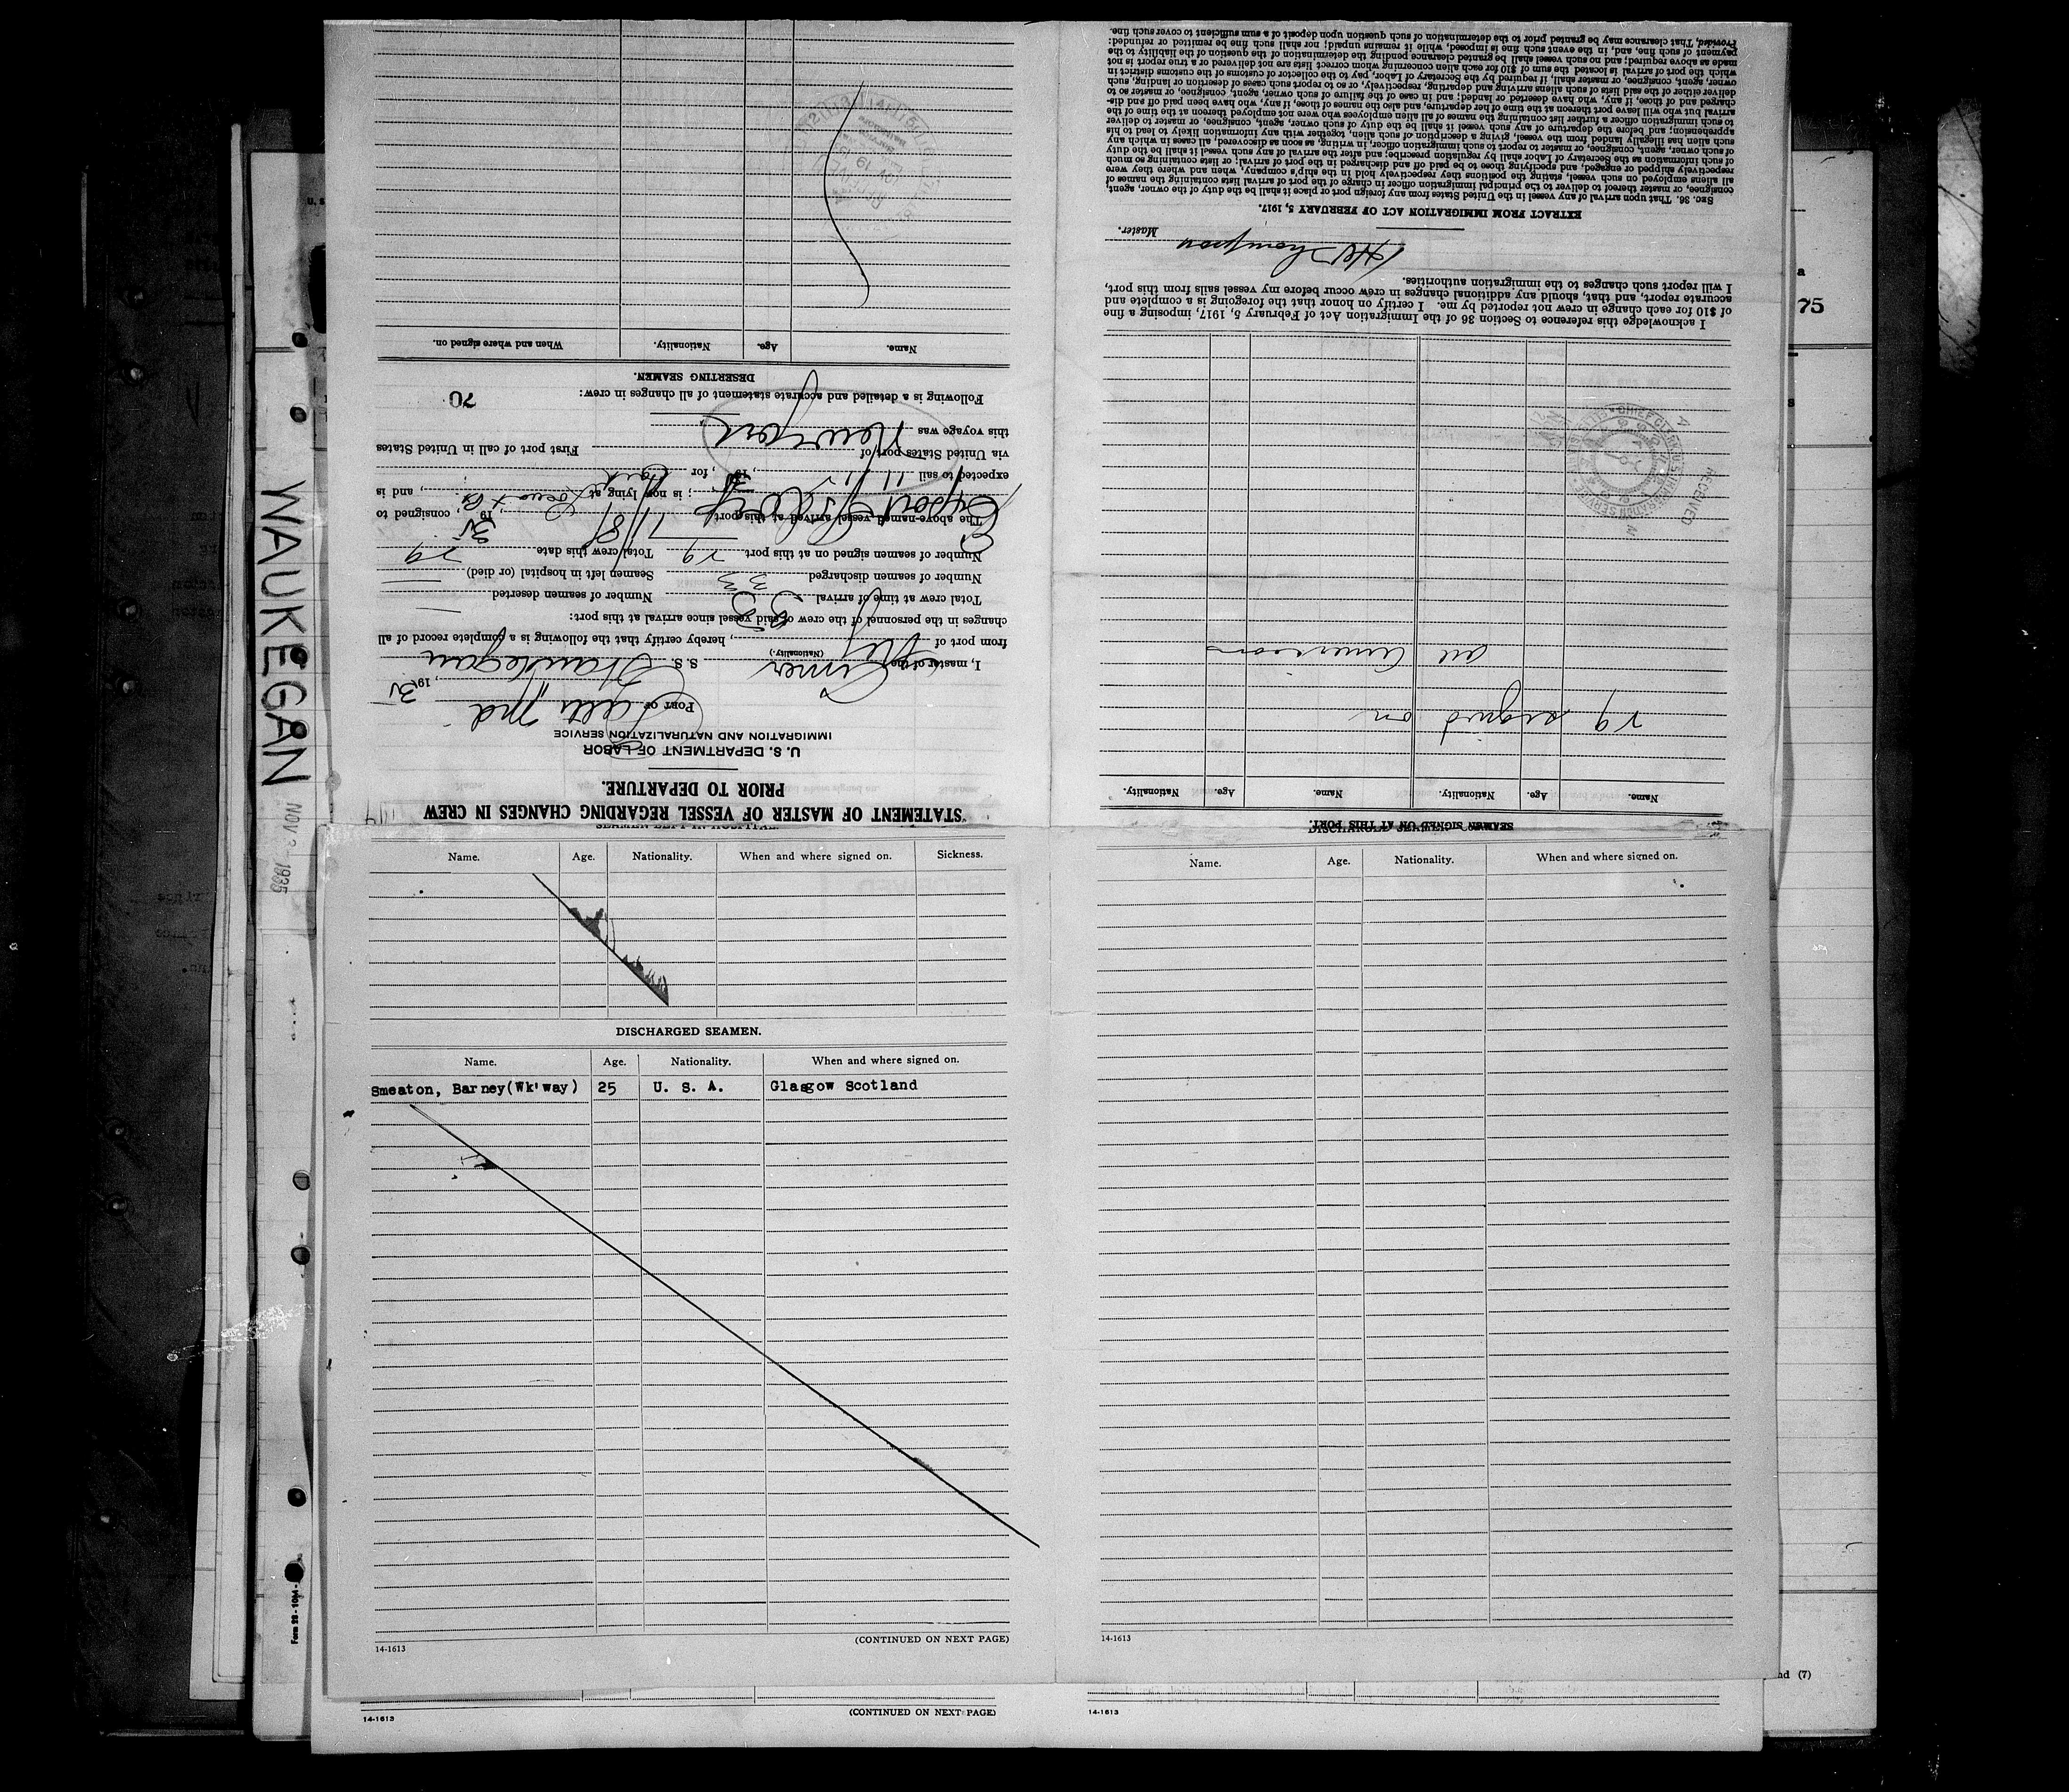 WAUKEGAN
NOV 3 1935
STATEMENT OF MASTER OF VESSEL REGARDING CHANGES IN CREW
PRIOR TO DEPARTURE.
U. S. DEPARTMENT OF LABOR
IMMIGRATION AND NATURALIZATION SERVICE
PORT OF Balto Md , 19 35
I, master of the S. S. Waukegan
(Nationality.)
from port of , hereby certify that the following is a complete record of all
changes in the personnel of the crew of said vessel since arrival at this port:
Total crew at time of arrival 33 Number of seamen deserted
Number of seamen discharged 33 Seamen left in hospital (or died)
Number of seamen signed on at this port 29 Total crew this date 29
The above-named vessel arrived at this port 11/8 , 19 35, consigned to
; is now lying at , and is
expected to sail 11/11 , 19 35, for Havre
via United States port of First port of call in United States
this voyage was New York
Following is a detailed and accurate statement of all changes in crew: 70
DESERTING SEAMEN.
Name. Age. Nationality. When and where signed on.
SEAMEN SIGNED ON AT THIS PORT.
Name. Age. Nationality. Name. Age. Nationality.
29 signed on
all Americans
I acknowledge this reference to Section 36 of the Immigration Act of February 5, 1917, imposing a fine
of $10 for each change in crew not reported by me. I certify on honor that the foregoing is a complete and
accurate report, and that, should any additional changes in crew occur before my vessel sails from this port,
I will report such changes to the immigration authorities.
Thompson Master.
EXTRACT FROM IMMIGRATION ACT OF FEBRUARY 5, 1917.
SEC. 36. That upon arrival of any vessel in the United States from any foreign port or place it shall be the duty of the owner, agent,
consignee, or master thereof to deliver to the principal immigration officer in charge of the port of arrival lists containing the names of
all aliens employed on such vessel, stating the positions they respectively hold in the ship's company, when and where they were
respectively shipped or engaged, and specifying those to be paid off and discharged in the port of arrival; or lists containing so much
of such information as the Secretary of Labor shall by regulation prescribe; and after the arrival of any such vessel it shall be the duty
of such owner, agent, consignee, or master to report to such immigration officer, in writing, as soon as discovered, all cases in which any
such alien has illegally landed from the vessel, giving a description of such alien, together with any information likely to lead to his
apprehension; and before the departure of any such vessel it shall be the duty of such owner, agent, consignee, or master to deliver
to such immigration officer a further list containing the names of all alien employees who were not employed thereon at the time of the
arrival but who will leave port thereon at the time of her departure, and also the names of those, if any, who have been paid off and dis-
charged and of those, if any, who have deserted or landed; and in case of the failure of such owner, agent, consignee, or master so to
deliver either of the said lists of such aliens arriving and departing, respectively, or so to report such cases of desertion or landing, such
owner, agent, consignee, or master shall, if required by the Secretary of Labor, pay to the collector of customs of the customs district in
which the port of arrival is located the sum of $10 for each alien concerning whom correct lists are not delivered or a true report is not
made as above required; and no such vessel shall be granted clearance pending the determination of the question of the liability to the
payment of such fine, and, in the event such fine is imposed, while it remains unpaid; nor shall such fine be remitted or refunded:
Provided, That clearance may be granted prior to the determination of such question upon deposit of a sum sufficient to cover such fine.
RECEIVED
SEAMEN LEFT IN HOSPITAL
Name. Age. Nationality. When and where signed on. Sickness.
DISCHARGED SEAMEN.
Name. Age. Nationality. When and where signed on.
Smeaton, Barney(Wk'way) 25 U. S. A. Glasgow Scotland
(CONTINUED ON NEXT PAGE)
14-1613
Name. Age. Nationality. When and where signed on.
14-1613
(CONTINUED ON NEXT PAGE)
14-1613
14-1613
75
nd (7)